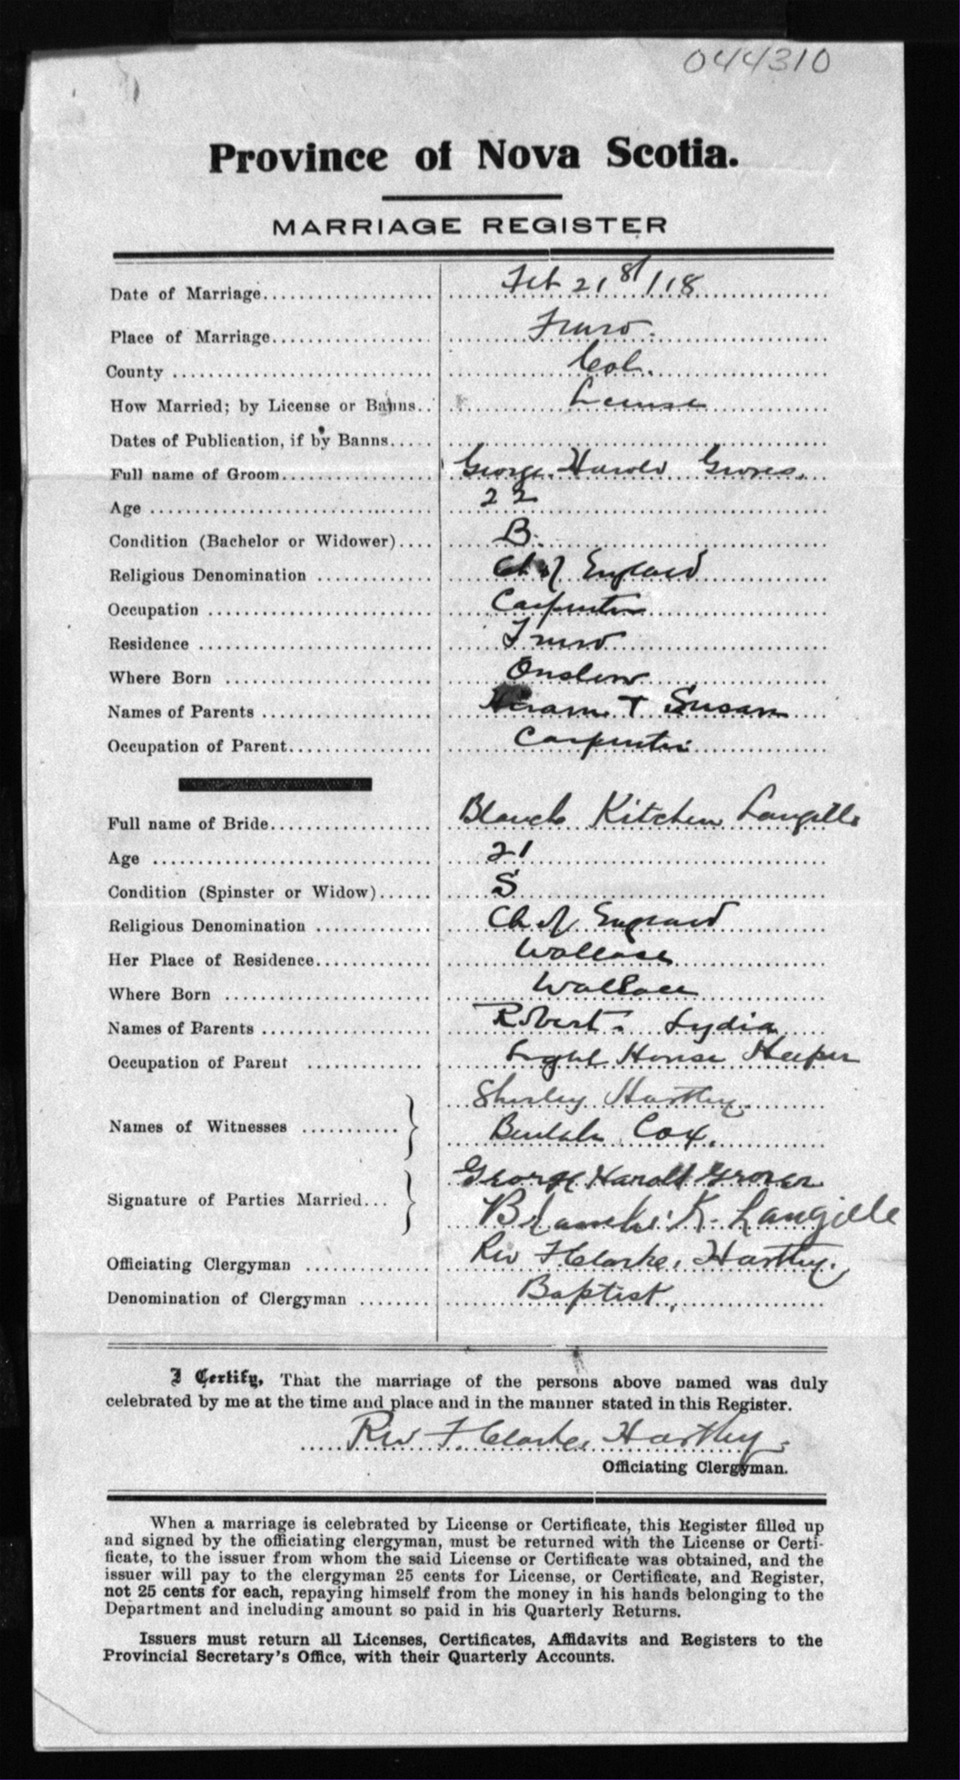 044310
Province of Nova Scotia.
MARRIAGE REGISTER
Date of Marriage.................. Feb 21st/18
Place of Marriage.................. Truro.
County .................. Col.
How Married; by License or Banns.. License
Dates of Publication, if by Banns.....
Full name of Groom.................. George Harold Groves.
Age .................. 22
Condition (Bachelor or Widower).... B.
Religious Denomination ............ Ch of England
Occupation .................. Carpenter
Residence .................. Truro
Where Born .................. Onslow
Names of Parents .................. Hiram + Susan
Occupation of Parent.................. Carpenter
Full name of Bride.................. Blanch Kitchen Langille
Age .................. 21
Condition (Spinster or Widow)...... S
Religious Denomination ............ Ch of England
Her Place of Residence............ Wallace
Where Born .................. Wallace
Names of Parents .................. Robert. Lydia
Occupation of Parent ............ Light House Keeper
Names of Witnesses ........... } Shirley Hartley.
Beulah Cox.
Signature of Parties Married... } George Harold Groves
Blanche K. Langille
Officiating Clergyman ............ Rev F Clarke Hartley.
Denomination of Clergyman ........ Baptist.
I Certify, That the marriage of the persons above named was duly
celebrated by me at the time and place and in the manner stated in this Register.
Rev F. Clarke Hartley
Officiating Clergyman.
When a marriage is celebrated by License or Certificate, this Register filled up
and signed by the officiating clergyman, must be returned with the License or Certi-
ficate, to the issuer from whom the said License or Certificate was obtained, and the
issuer will pay to the clergyman 25 cents for License, or Certificate, and Register,
not 25 cents for each, repaying himself from the money in his hands belonging to the
Department and including amount so paid in his Quarterly Returns.
Issuers must return all Licenses, Certificates, Affidavits and Registers to the
Provincial Secretary's Office, with their Quarterly Accounts.